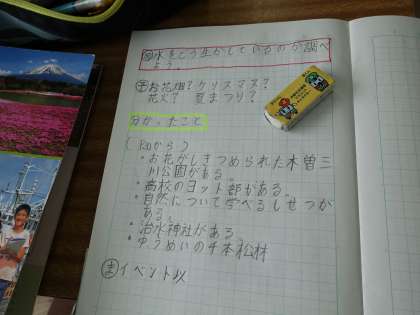 水をどう生かしているのか調べ
よう
予お花畑?クリスマス?
花火? 夏まつり?
分かったこと
から)
・お花がしきつめられた木曽三
川公園がある。
・高校のヨット部がある。
・自然について学べるしせつが
ある。
・治水神社がある。
・ゆうめいの千本松林
まイベント以